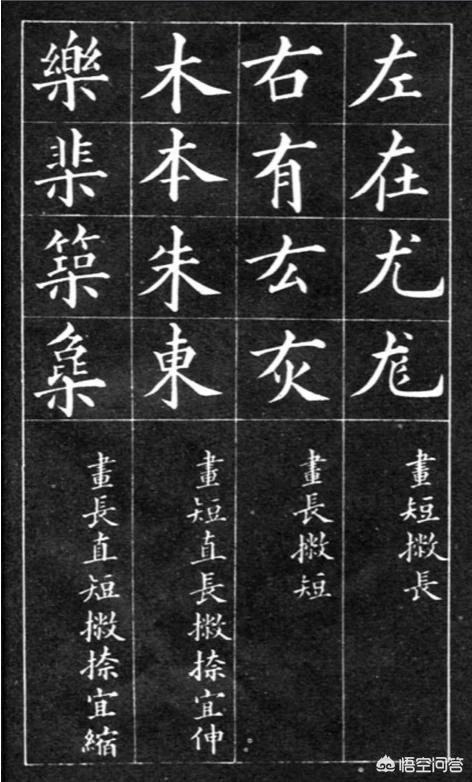 左在尤尨
畫短撇長
右有厷灰
畫長撇短
木本朱東
畫短直長撇捺宜伸
樂棐築
畫長直短撇捺宜縮
悟空问答